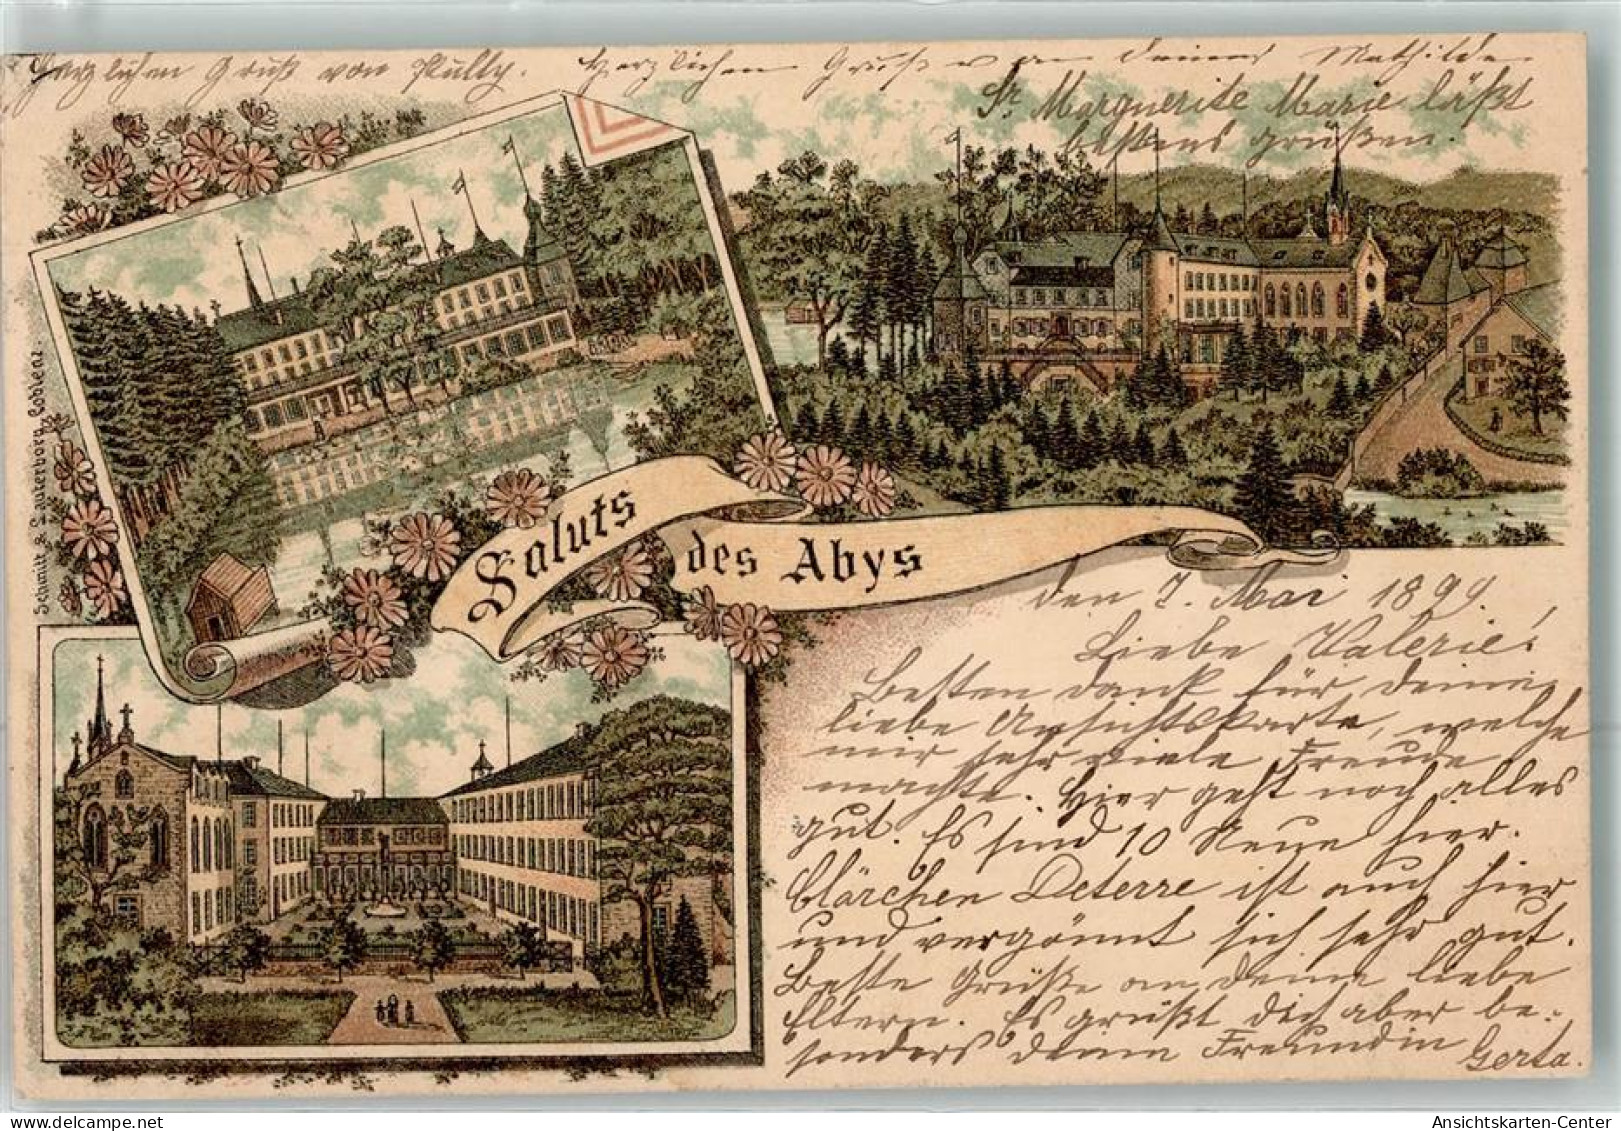 Herzlichen Gruß von Pully. Herzlichen Gruß von deiner Mathilde.
Sr. Marguerite Marie läßt
bestens grüßen.
Schmitt & Lauterborn, Coblenz.
Saluts
des Abys
den 7. Mai 1899.
Liebe Valerie!
Besten Dank für deine
liebe Ansichtskarte, welche
mir sehr viele Freude
machte. Hier geht noch alles
gut. Es sind 10 Neue hier.
Clärchen Deterre ist auch hier
und vergönnt sich sehr gut.
Beste Grüße an deine liebe
Eltern. Es grüßt dich aber be-
sonders deine Freundin
Gerta.
Ansichtskarten-Center